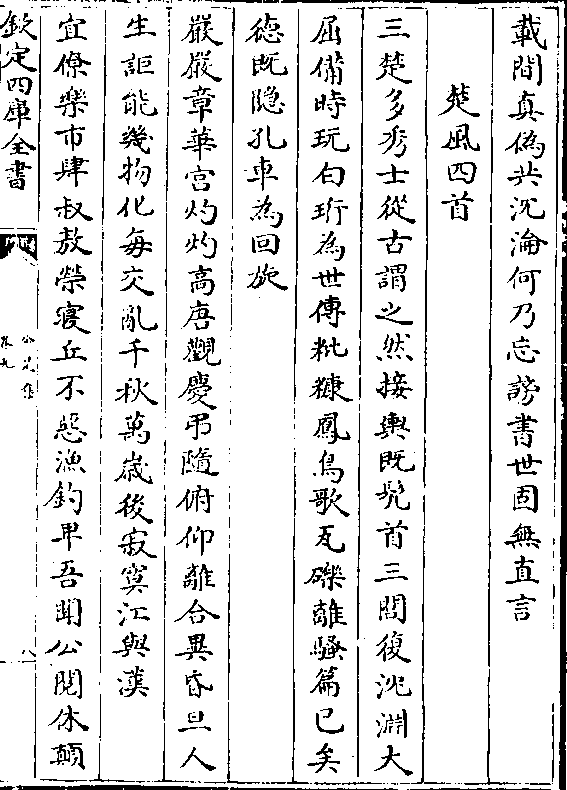 載間真偽共沉淪何乃忘謗書世固無直言
楚風四首
三楚多秀士從古謂之然接輿既髠首三閭復沈淵大
屈備時玩白珩為世傳秕糠鳳鳥歌瓦礫離騷篇已矣
德既隱孔車為回旋
嚴嚴章華宮灼灼高唐觀慶弔隨俯仰離合異昏旦人
生詎能幾物化每交亂千秋萬歲後寂寞江與漢
宜僚樂市肆叔敖榮寢丘不惡漁釣卑吾聞公閱休顛
欽定四庫全書
公是集
卷九
八